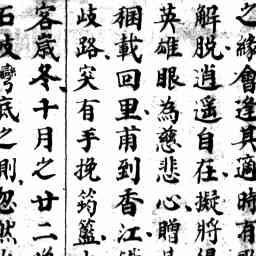 之緣會逢其適時有
解脫逍遥自在擬將
英雄眼為慈悲心贈
稇載回里甫到香江
歧路突有手挽筠籃
客嵗冬十月之廿二
石岐灣底之則忽然